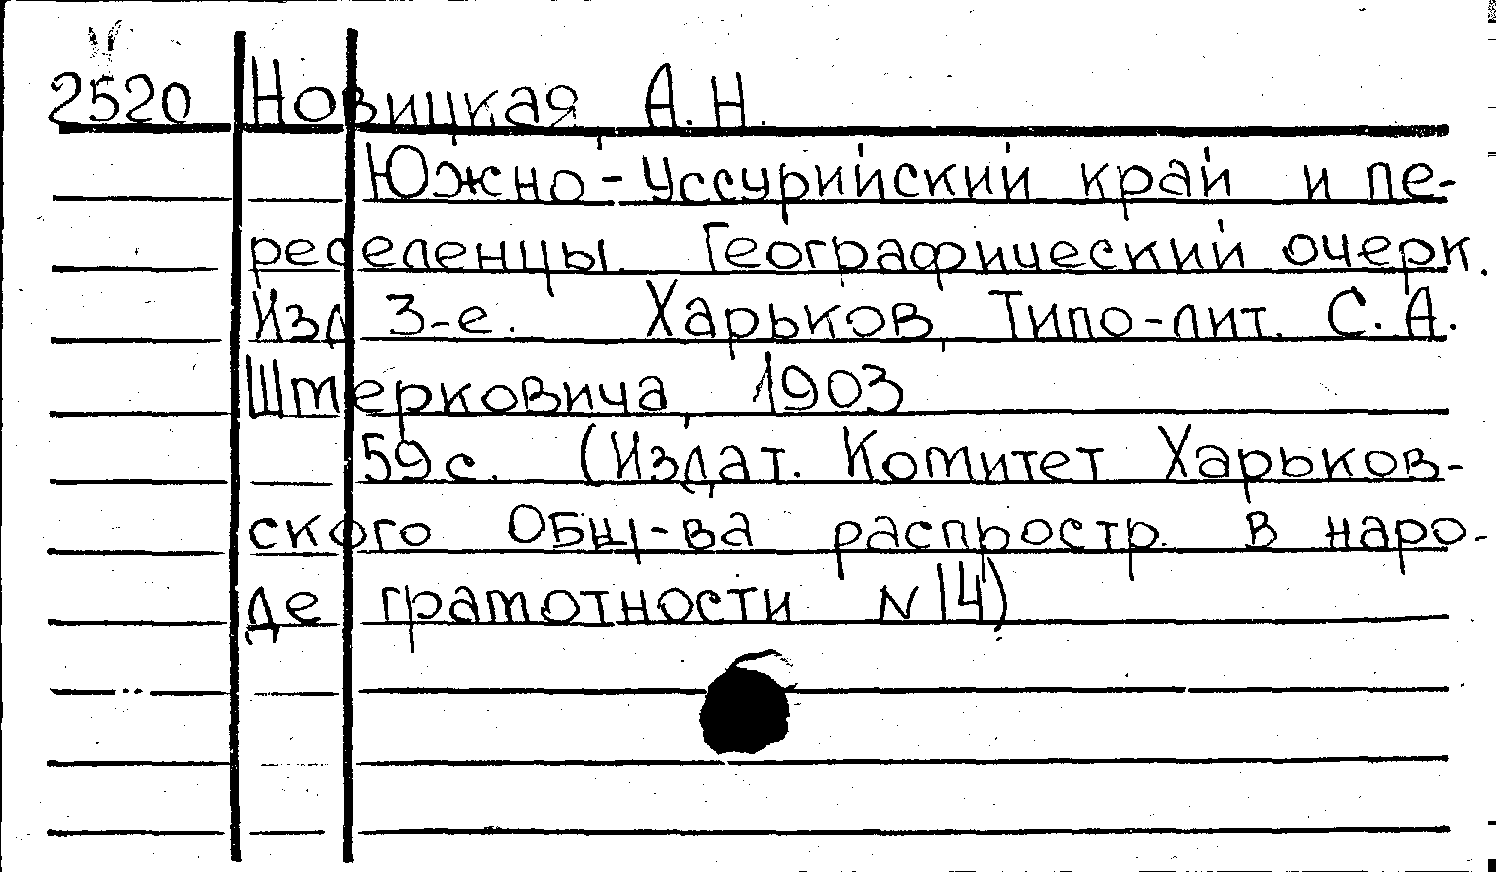 2520 Новицкая, А.Н.
Южно-Уссурийский край и пе-
реселенцы. Географический очерк.
Изд 3-е. Харьков, Типо-лит. С.А.
Штерковича, 1903
59 с. (Издат. Комитет Харьков-
ского Общ-ва распростр. в наро-
де грамотности N 14)